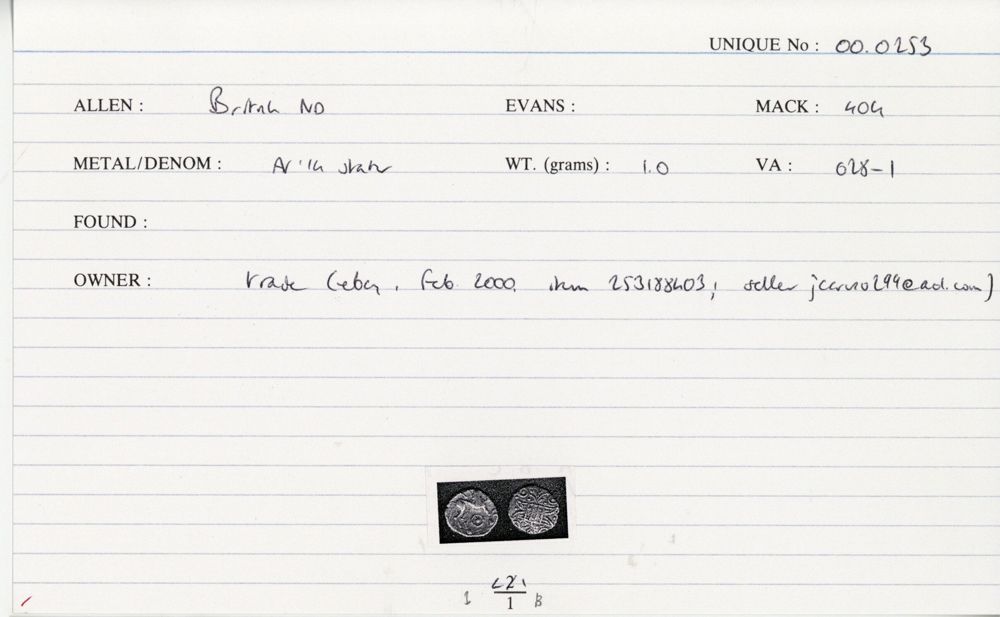 UNIQUE No : 00.0253
ALLEN : British ND EVANS : MACK : 404
METAL/DENOM : Ar 1/4 stater WT. (grams) : 1.0 VA : 028-1
FOUND :
OWNER : trade (ebay, Feb 2000, item 253188403; seller
L21
1 1 B